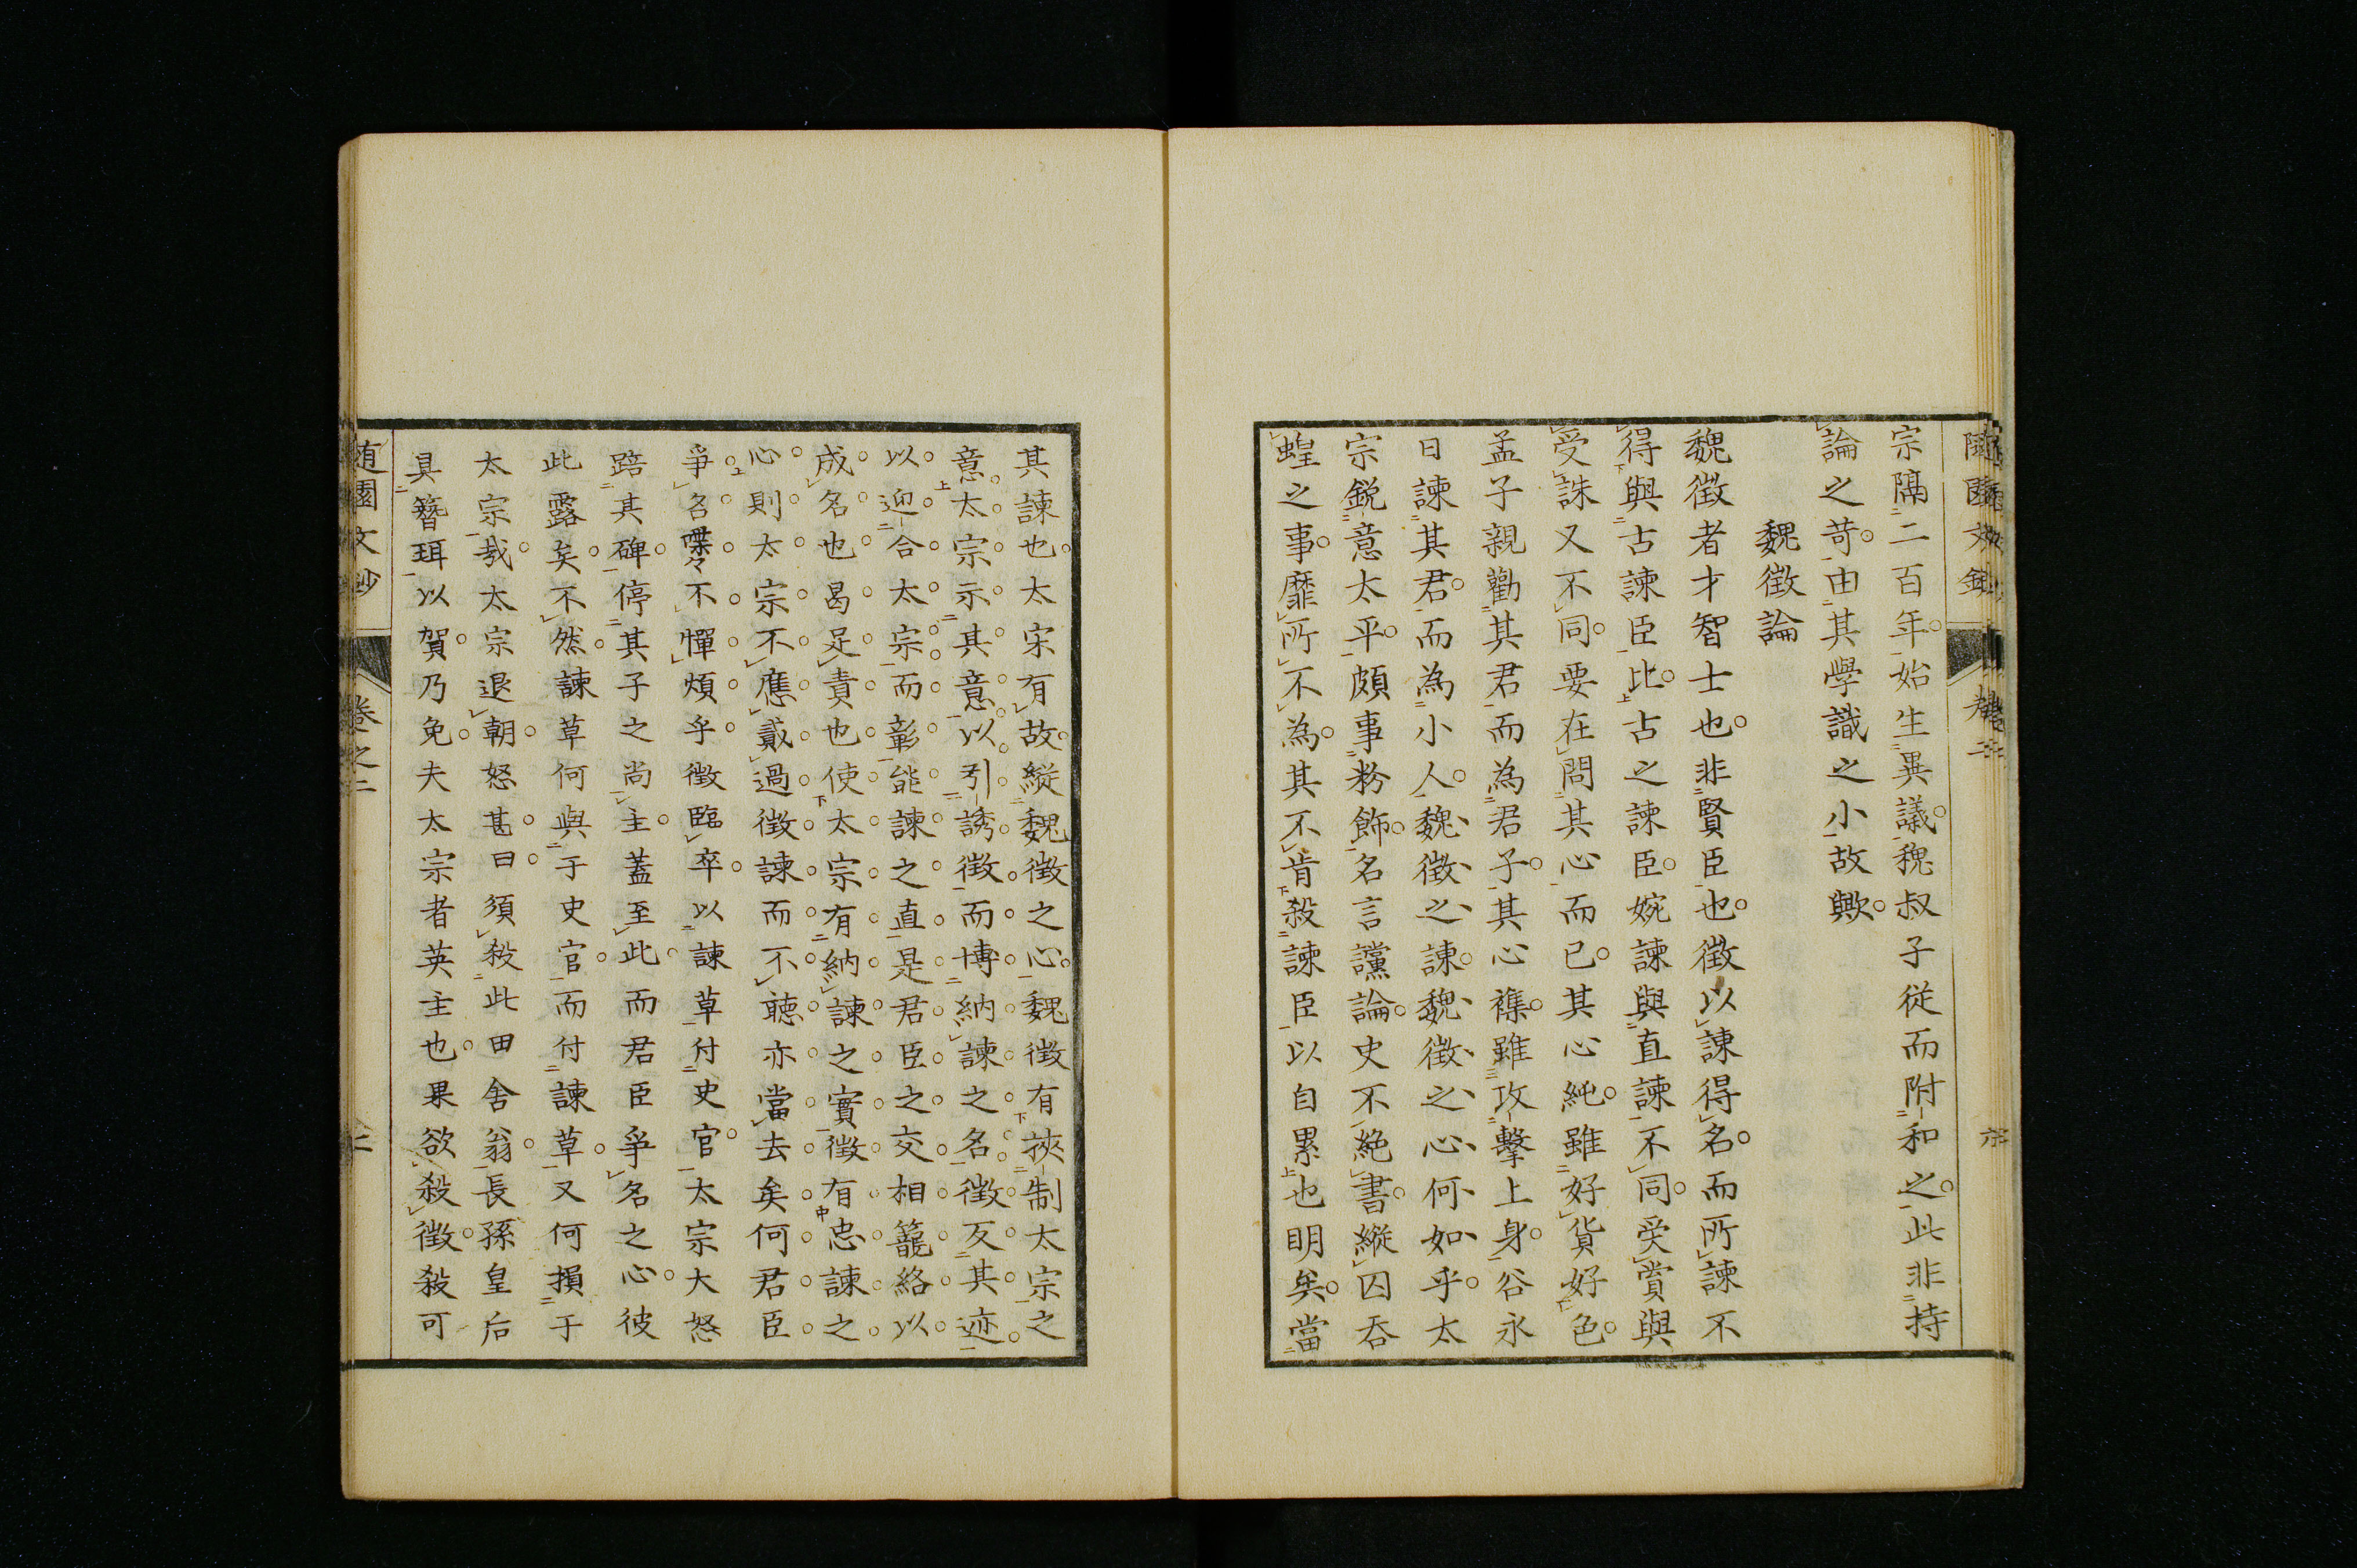 宗隔二百年始生異議魏叔子従而附和之此非持
論之苛由其學識之小故歟
魏徴論
魏徴者才智士也非賢臣也徴以諌得名而所諌不
得與古諌臣比古之諌臣婉諌與直諌不同受賞與
受誅又不同要在問其心而已其心純雖好貨好色
孟子親勸其君而為君子其心襍雖攻擊上身谷永
日諌其君而為小人魏徴之諌魏徴之心何如乎太
宗鋭意太平頗事粉飾名言讜論史不絶書縦囚吞
蝗之事靡所不為其不肯殺諌臣以自累也明矣當
其諌也太宋有故縦魏徴之心魏徴有挾制太宗之
意太宗示其意以引誘徴而博納諌之名徴反其迹
以迎合太宗而彰能諌之直是君臣之交相籠絡以
成名也曷足責也使太宗有納諌之實徴有忠諌之
心則太宗不應貳過徴諌而不聴亦當去矣何君臣
爭名喋々不憚煩乎徴臨卒以諌草付史官太宗大怒
踣其碑停其子之尚主蓋至此而君臣爭名之心彼
此露矣不然諌草何與于史官而付諌草又何損于
太宗哉太宗退朝怒甚曰須殺此田舍翁長孫皇后
具簪珥以賀乃免夫太宗者英主也果欲殺徴殺可
随園文鈔
卷之二